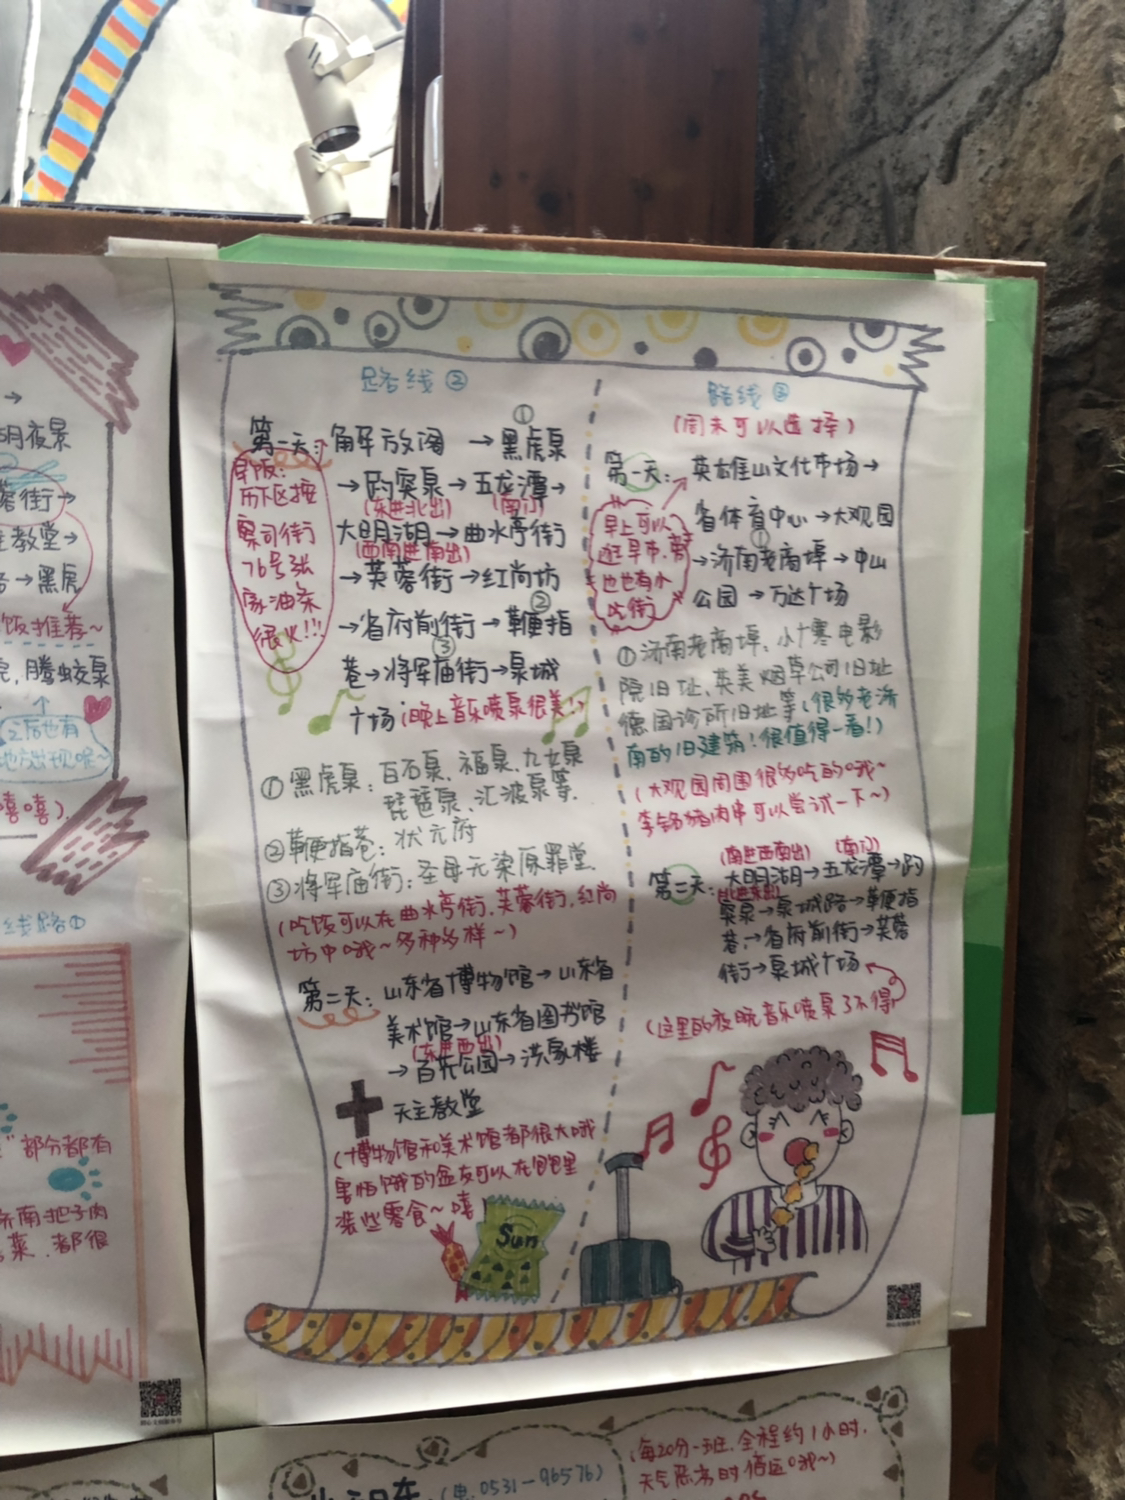 路线②
第一天: 解放阁 → 黑虎泉①
→趵突泉→五龙潭→
(东进北出) (南门)
大明湖→曲水亭街
(西南进南出)
→芙蓉街→红尚坊
→省府前街→鞭指②
巷→将军庙街③→泉城
广场(晚上音乐喷泉很美!)
早饭:
历下区按
察司街
76号张
家油条
很火!!!
①黑虎泉: 白石泉、福泉、九女泉
琵琶泉、汇波泉等.
②鞭指巷: 状元府
③将军庙街: 圣母无染原罪堂
(吃饭可以在曲水亭街、芙蓉街、红尚
坊中哦~多种多样~)
第二天: 山东省博物馆→山东省
美术馆→山东省图书馆
(东进西出)
→百花公园→洪家楼
天主教堂
(博物馆和美术馆都很大哦
害怕饿的盆友可以在包包里
装些零食~嘻
Sun
路线③
(周末可以选择)
第一天: 英雄山文化市场→
省体育中心→大观园
→济南老商埠①→中山
公园→万达广场
早上可以
逛早市,旁
也有小
吃街
①济南老商埠: 小广寒电影
院旧址、英美烟草公司旧址
德国诊所旧址等(很多老济
南的旧建筑!很值得一看!)
(大观园周围很多吃的哦~
李铭猪肉串可以尝试一下~)
(南进西南出) (南门)
第二天: 大明湖→五龙潭→趵
(北进东出)
突泉→泉城路→鞭指
巷→省府前街→芙蓉
街→泉城广场
(这里的夜晚音乐喷泉了不得)
月夜景
街→
教堂→
→黑虎
饭推荐~
腾蛟泉
也有
嘻嘻)
线路①
部分都有
济南把子肉
菜.都很
(电:0531-96576)
(每20分一班.全程约1小时.